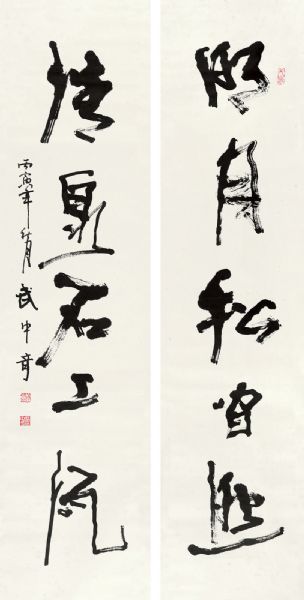 明月松間照
清泉石上流
丙寅年秋月武中奇